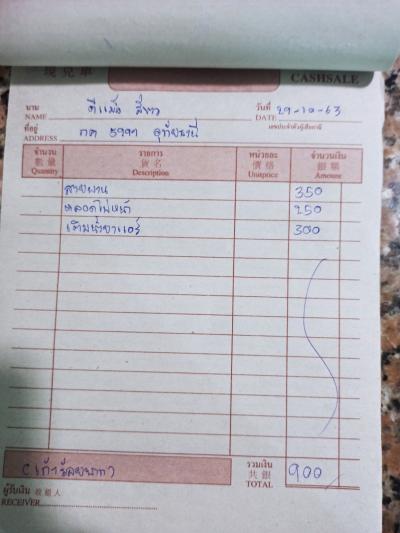 現兑單 CASHSALE
นาม NAME ดีแม็ก สีขาว วันที่ DATE 29-10-63
ที่อยู่ ADDRESS กค 5991 อุทัยธานี เลขประจำตัวผู้เสียภาษี
จำนวน 數量 Quantity รายการ 貨名 Description หน่วยละ 價格 Unitprice จำนวนเงิน 銀額 Amount
สายพาน 350
หลอดไฟหน้า 250
เติมน้ำยาแอร์ 300
(เก้าร้อยบาท) รวมเงิน 共銀 TOTAL 900
ผู้รับเงิน 收銀人 RECEIVER